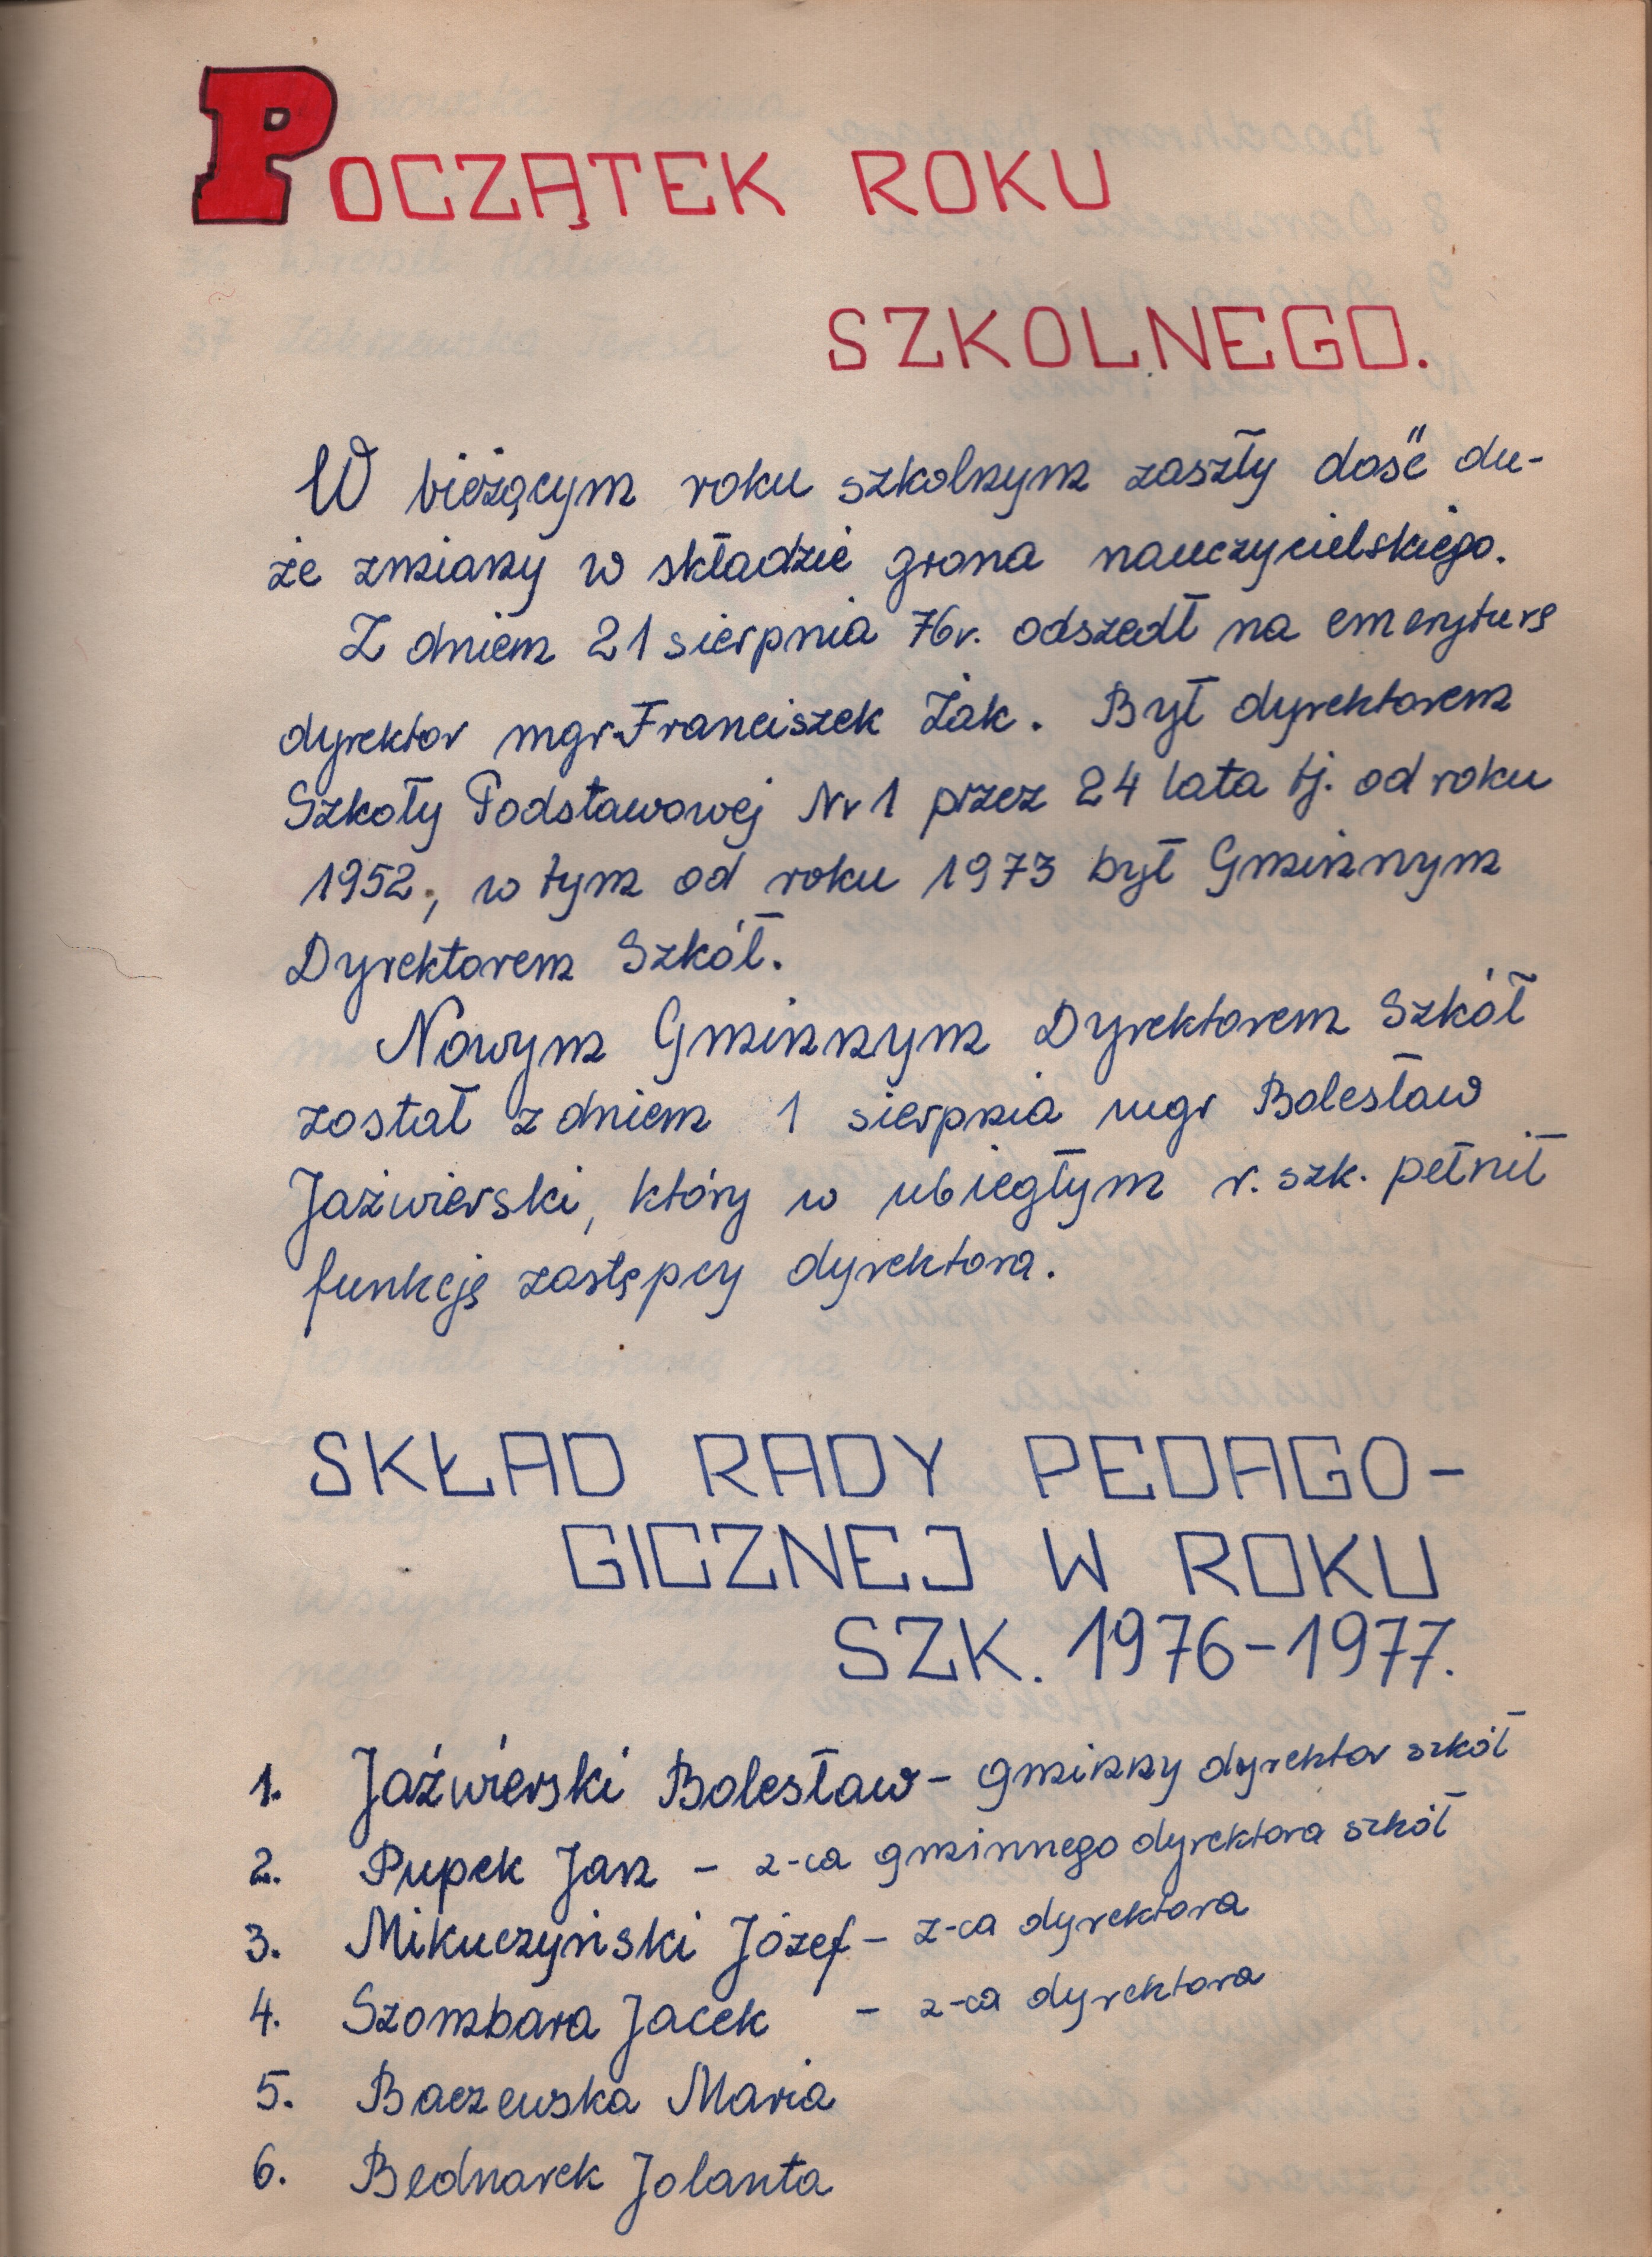 POCZĄTEK ROKU
SZKOLNEGO.
W bieżącym roku szkolnym zaszły dość du-
że zmiany w składzie grona nauczycielskiego.
Z dniem 21 sierpnia 76r. odszedł na emeryturę
dyrektor mgr Franciszek Żak. Był dyrektorem
Szkoły Podstawowej Nr 1 przez 24 lata tj. od roku
1952, w tym od roku 1973 był Gminnym
Dyrektorem Szkół.
Nowym Gminnym Dyrektorem Szkół
został z dniem 1 sierpnia mgr Bolesław
Jaźwierski, który w ubiegłym r. szk. pełnił
funkcję zastępcy dyrektora.
SKŁAD RADY PEDAGO-
GICZNEJ W ROKU
SZK. 1976-1977.
1. Jaźwierski Bolesław - gminny dyrektor szkół
2. Pupek Jan - z-ca gminnego dyrektora szkół
3. Mikuczyński Józef - z-ca dyrektora
4. Szombara Jacek - z-ca dyrektora
5. Baczewska Maria
6. Bednarek Jolanta